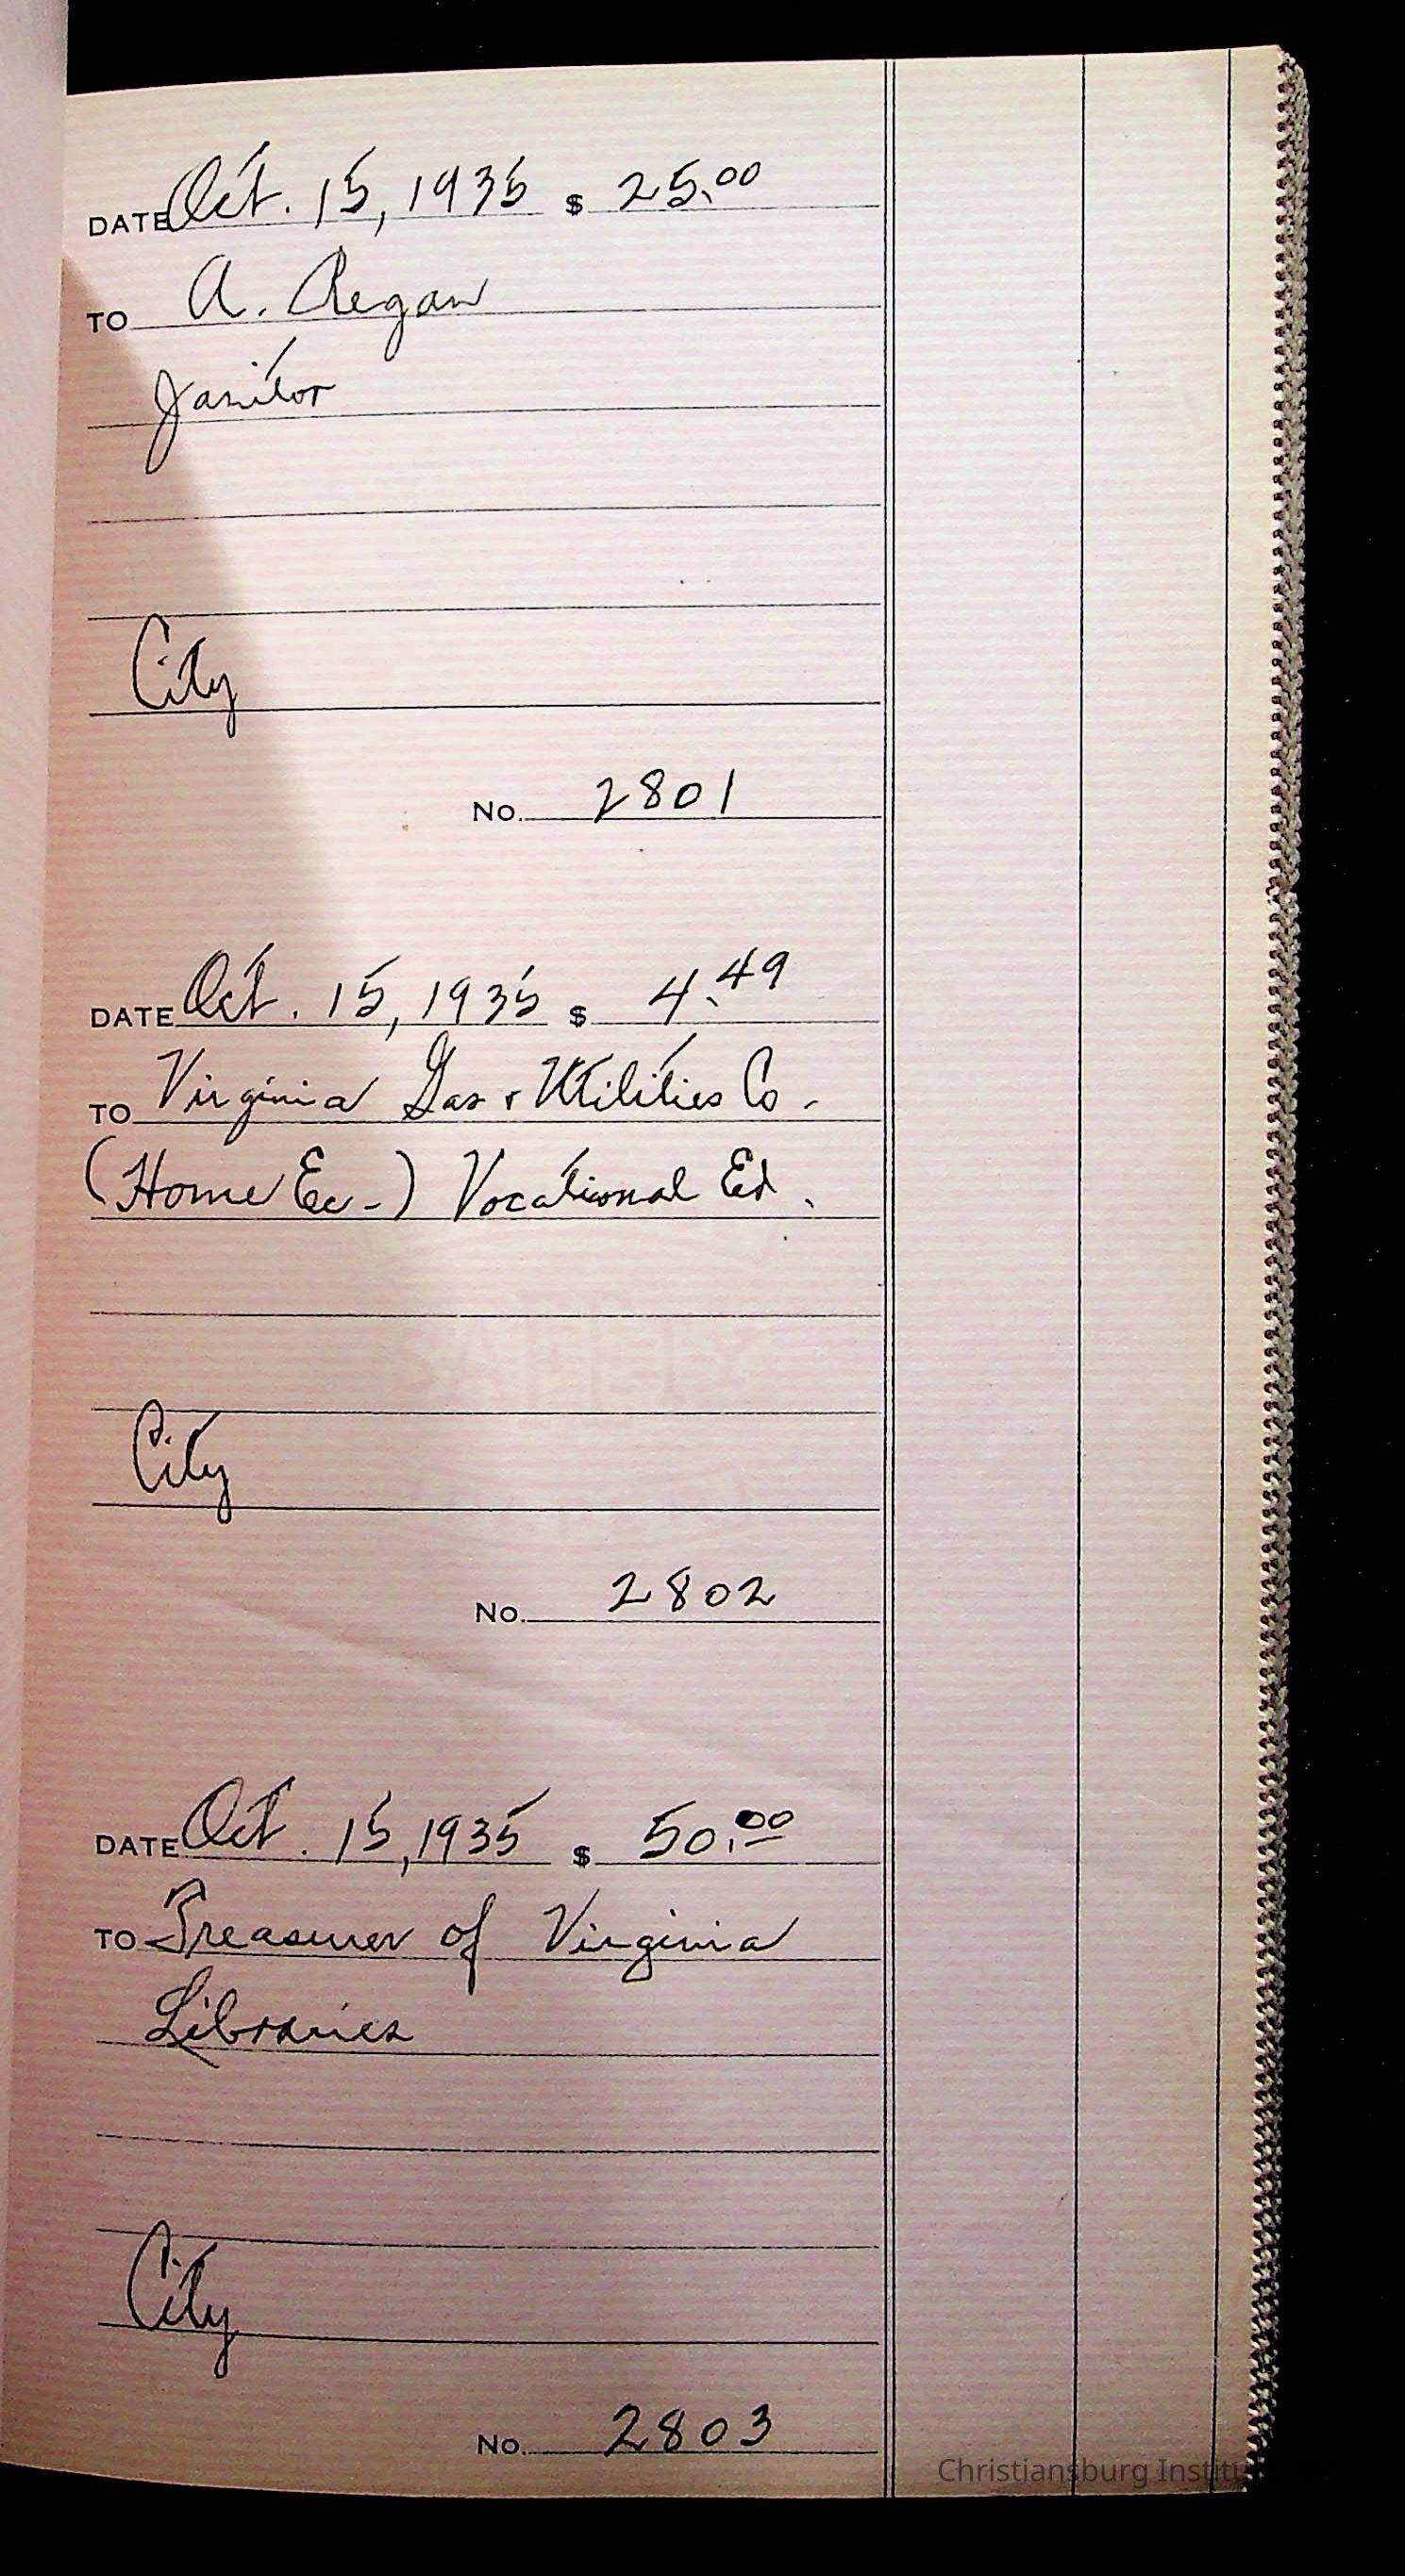 DATE Oct. 15, 1935 $ 25.00
TO A. Regan
Janitor
City
No. 2801
DATE Oct. 15, 1935 $ 4.49
TO Virginia Gas & Utilities Co.
(Home Ec-) Vocational Ed.
City
No. 2802
DATE Oct. 15, 1935 $ 50.00
TO Treasurer of Virginia
Libraries
City
No. 2803
Christiansburg Institu